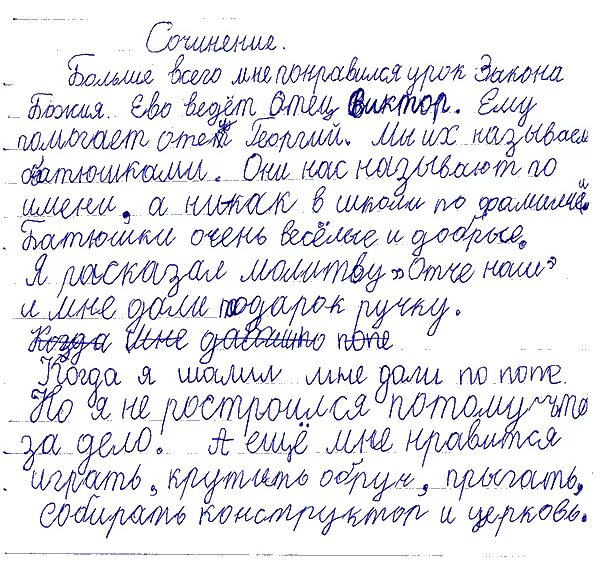 Сочинение.
Больше всего мне понравился урок Закона
Божия. Ево ведёт Отец Виктор. Ему
помогает отец Георгий. Мы их называем
батюшками. Они нас называют по
имени, а ни как в школи по фамилией.
Батюшки очень весёлые и добрые.
Я расказал молитву "Отче наш"
и мне дали подарок ручку.
Когда мне давашно попе
Когда я шалил мне дали по попе.
Но я не ростроился потому-что
за дело. А ещё мне нравится
играть, крутить обруч, прыгать,
собирать конструктор и церковь.